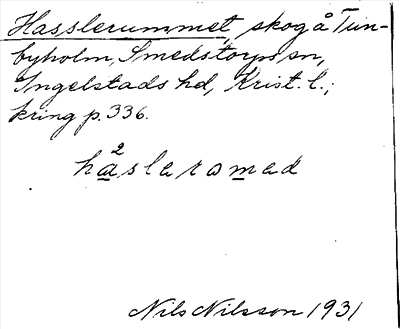 Hasslerummet, skog å Tun-
byholm, Smedstorps sn,
Ingelstads hd, Krist. l.;
kring p. 336.
2
hasleromed
Nils Nilsson 1931